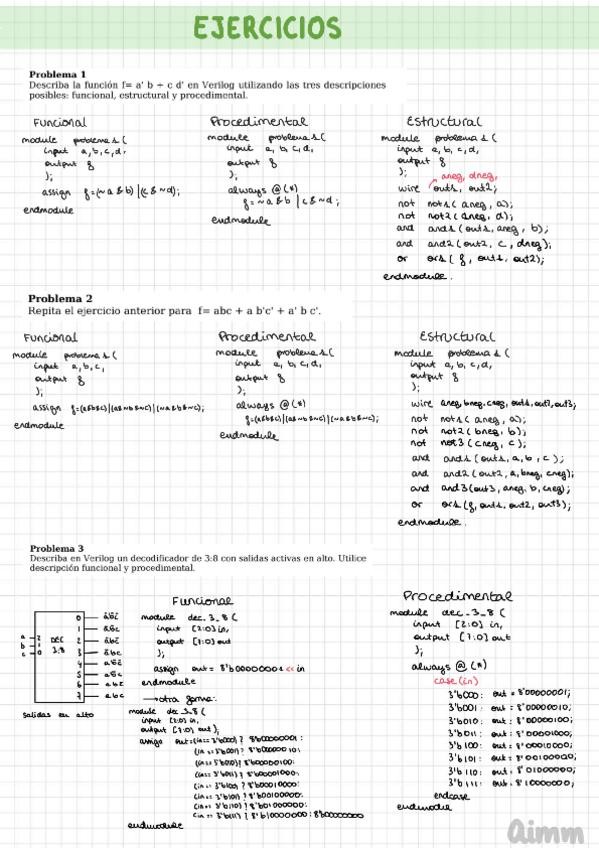 EJERCICIOS
Problema 1
Describa la función f= a' b + c d' en Verilog utilizando las tres descripciones
posibles: funcional, estructural y procedimental.
Funcional
module problema 1 (
input a, b, c, d,
output f
);
assign f=(~a & b) | (c & ~d);
endmodule
Procedimental
module problema 1 (
input a, b, c, d,
output f
);
always @ (*)
f = ~a & b | c & ~d;
endmodule
Estructural
module problema 1 (
input a, b, c, d,
output f
);
aneg, dneg,
wire out1, out2;
not not1 ( aneg, a);
not not2 ( dneg, d);
and and1 (out1, aneg, b);
and and2 (out2, c, dneg);
or or1 ( f, out1, out2);
endmodule.
Problema 2
Repita el ejercicio anterior para f= abc + a b'c' + a' b c'.
Funcional
module problema 1 (
input a, b, c,
output f
);
assign f=(a&b&c)|(a&~b&~c)|(~a&b&~c);
endmodule
Procedimental
module problema 1 (
input a, b, c, d,
output f
);
always @ (*)
f=(a&b&c)|(a&~b&~c)|(~a&b&~c);
endmodule
Estructural
module problema 1 (
input a, b, c, d,
output f
);
wire aneg, bneg, cneg, out1, out2, out3;
not not1 ( aneg, a);
not not2 ( bneg, b);
not not3 ( cneg, c);
and and1 ( out1, a, b, c );
and and2 (out2, a, bneg, cneg);
and and3 (out3, aneg, b, cneg);
or or1 (f, out1, out2, out3);
endmodule.
Problema 3
Describa en Verilog un decodificador de 3:8 con salidas activas en alto. Utilice
descripción funcional y procedimental.
a 2 DEC 3:8
b 1
c 0
0 a̅b̅c̅
1 a̅b̅c
2 a̅bc̅
3 a̅bc
4 ab̅c̅
5 ab̅c
6 abc̅
7 abc
salidas en alto
Funcional
module dec_3_8 (
input [2:0] in,
output [7:0] out
);
assign out = 8'b00000001 << in
endmodule
→otra forma:
module dec_3_8 (
input [2:0] in,
output [7:0] out );
assign out=(in== 3'b000) ? 8'b00000001 :
(in== 3'b001) ? 8'b00000010 :
(in== 3'b010) ? 8'b00000100 :
(in== 3'b011) ? 8'b00001000 :
(in== 3'b100) ? 8'b00010000 :
(in== 3'b101) ? 8'b00100000 :
(in== 3'b110) ? 8'b01000000 :
(in== 3'b111) ? 8'b10000000 : 8'b00000000
endmodule
Procedimental
module dec_3_8 (
input [2:0] in,
output [7:0] out
);
always @ (*)
case(in)
3'b000: out = 8'00000001;
3'b001: out = 8'00000010;
3'b010: out = 8'00000100;
3'b011: out = 8'00001000;
3'b100: out = 8'00010000;
3'b101: out = 8'00100000;
3'b110: out = 8'01000000;
3'b111: out = 8'10000000;
endcase
endmodule
aimm